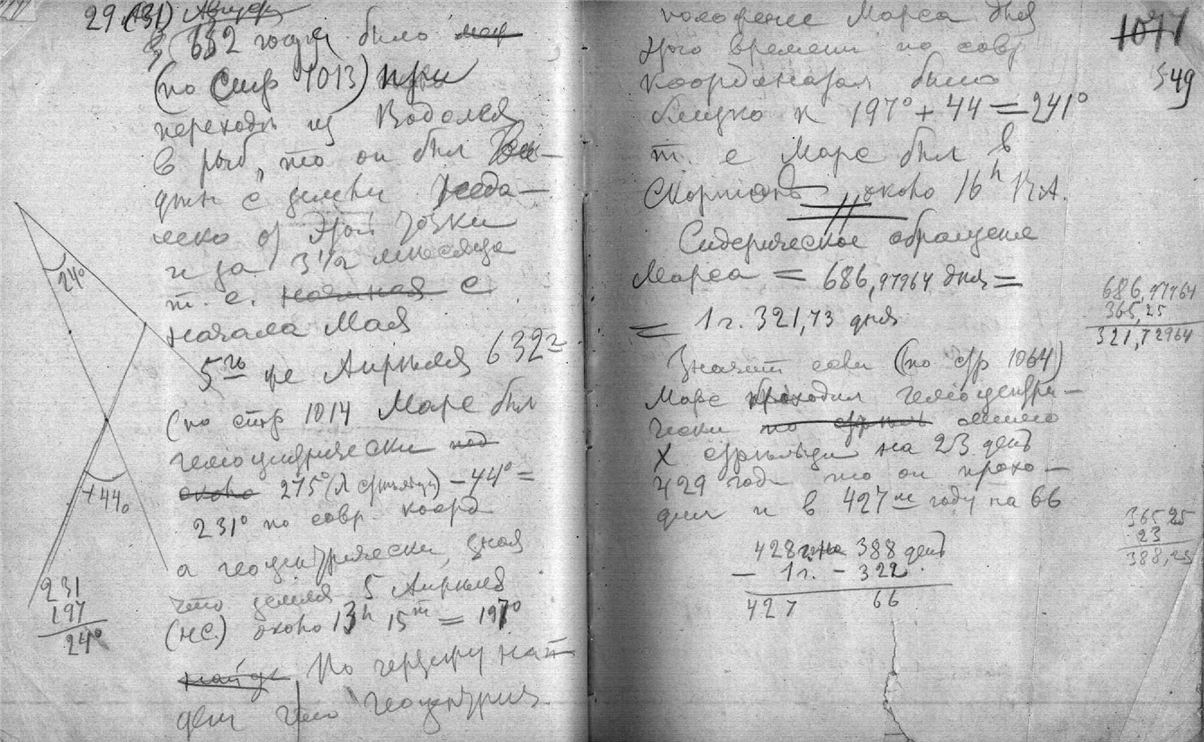 29 (31) Август
632 году было
(по Стр 1013) при
переходе из Водолея
в рыб, то он был
с земли
леко от этой точки
и за 3 1/2 месяца
т. е. начиная с
начала Мая
5го же Апреля 632 г
(по стр 1014 Марс был
гелиоцентрически под
около 275° (λ стрельца) – 44° =
231° по совр. коорд
а геоцентрически, зная
что земля 5 Апреля
(н с.) около 13h 15m = 197°
найде По чертежу най-
дем
24°
+44°
231
197
24°
положение Марса для
этого времени по совр
координатам было
близко к 197° + 44 = 241°
т. е Марс был в
Скорпионе, около 16h П.А.
Сидерическое обращение
Марса = 686,97964 дня =
= 1 г. 321,73 дня
Значит если (по стр 1064)
Марс проходил гелиоцентри-
чески по стрель мимо
X стрельца на 23 день
429 года то он прохо-
дил и в 427м году на 66
428 г. на 388 день
– 1 г. – 322
427 66
1071
549
686,97964
365,25
321,72964
365 25
23
388,25